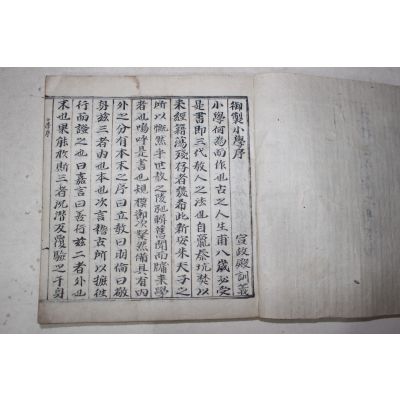 御製小學序
宣政殿訓義
小學何為而作也古之人生甫八歲必受
是書即三代敎人之法也自嬴秦坑焚以
來經籍蕩殘存者幾希此新安朱夫子之
所以慨然乎世敎之陵弛輯舊聞而牖來學
者也嗚呼是書也規模節次粲然備具有內
外之分有本末之序曰立敎曰明倫曰敬
身玆三者內也本也次言稽古所以摭往
行而證之也曰嘉言曰善行玆二者外也
末也果能於斯三者沉潛反覆驗之于身